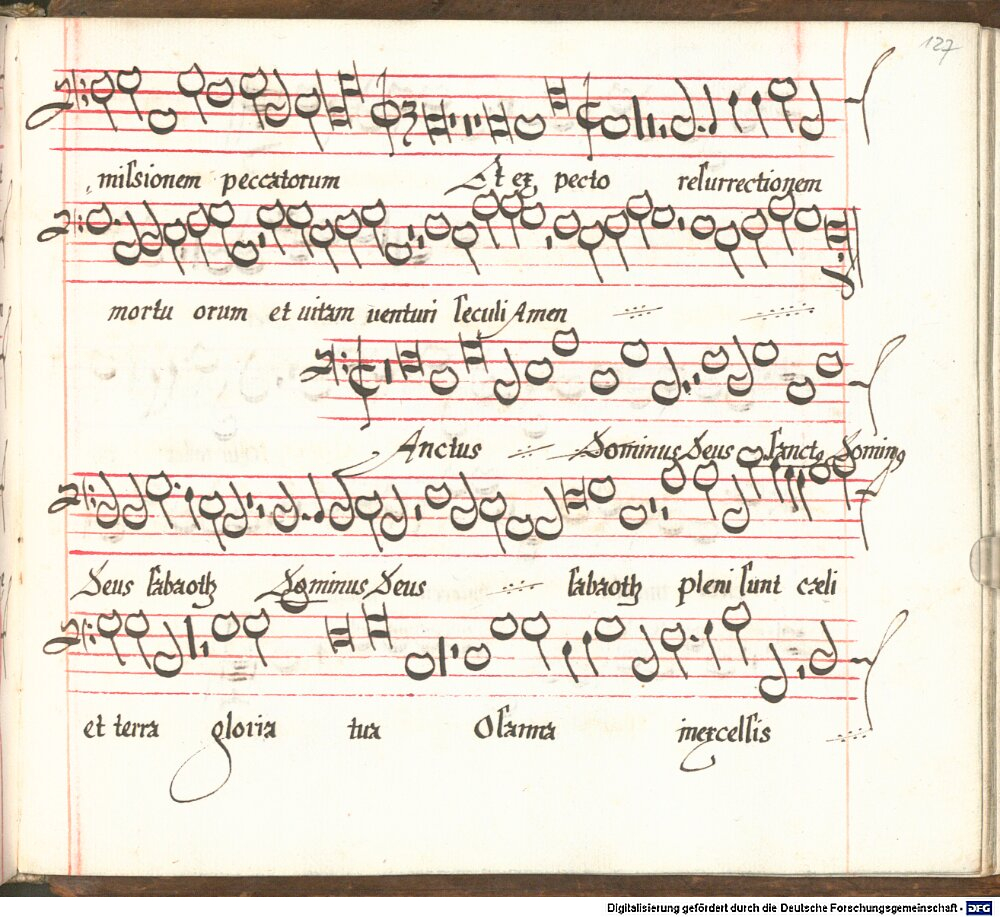 127
miſsionem peccatorum Et ex pecto reſurrectionem
mortu orum et uitam uenturi ſeculi Amen
Anctus Dominus Deus ſancto Domino
Deus ſabaoth Dominus Deus ſabaoth pleni ſunt cæli
et terra gloria tua Oſanna inexcelſis
Digitalisierung gefördert durch die Deutsche Forschungsgemeinschaft - DFG